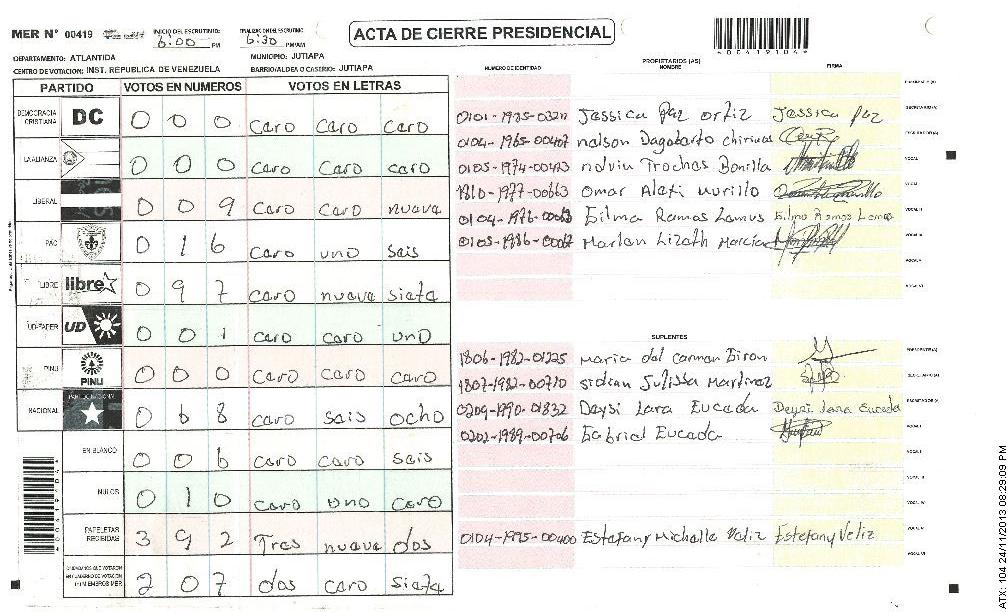 MER N° 00419 INICIO DEL ESCRUTINIO: 6:00 PM FINALIZACION DEL ESCRUTINIO: 6:30 PM/AM
ACTA DE CIERRE PRESIDENCIAL
00419104
DEPARTAMENTO: ATLANTIDA MUNICIPIO: JUTIAPA
CENTRO DE VOTACION: INST. REPUBLICA DE VENEZUELA BARRIO/ALDEA O CASERIO: JUTIAPA
PARTIDO VOTOS EN NUMEROS VOTOS EN LETRAS
DEMOCRACIA CRISTIANA DC 0 0 0 caro caro caro
LA ALIANZA 0 0 0 caro caro caro
LIBERAL 0 0 9 caro caro nueva
PAC 0 1 6 caro uno sais
LIBRE libre 0 9 7 caro nuava siata
UD-FAPER UD 0 0 1 caro caro uno
PINU PINU 0 0 0 caro caro caro
NACIONAL 0 6 8 caro sais ocho
EN BLANCO 0 0 6 caro caro sais
NULOS 0 1 0 caro uno caro
PAPELETAS RECIBIDAS 3 9 2 Tras nuava dos
CIUDADANOS QUE VOTARON EN CUADERNO DE VOTACION Y MIEMBROS MER 2 0 7 dos caro siata
PROPIETARIOS (AS)
NUMERO DE IDENTIDAD NOMBRE FIRMA
Jessica paz ortiz Jessica paz
0104-1965-00407 nalson Dagobarto chirinos
0105-1974-00423 Trochas Bonilla
1810-1977-00663 Omar Murillo
Ramos Lamus
Marlan Lizath
SUPLENTES
1806-1982-01225 maria dal carman Giron
1807-1982-00710 Julissa Martinaz
0209-1990-01832 Daysi Lara Eucada Deysi lara Euceda
0202-1989-00706 Gabrial Eucada
0104-1995-00400 Estafany Michalla Valiz Estefany Veliz
ATX: 104 24/11/2013 08:29:09 PM